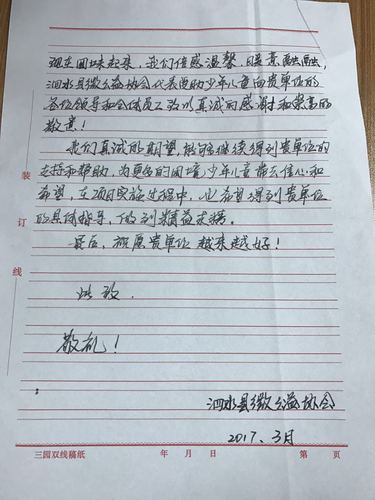 现在回味起来，我们倍感温馨，暖意融融，
泗水县微公益协会代表受助少年儿童向贵单位的
各位领导和全体员工致以真诚的感谢和崇高的
敬意！
我们真诚的期望，能够继续得到贵单位的
支持和帮助，为更多的困境少年儿童带去信心和
希望，在项目实施过程中，也希望得到贵单位
的具体指导，做到精益求精。
最后，祝愿贵单位越来越好！
此致
敬礼！
泗水县微公益协会
2017、3月
装
订
线
三园双线稿纸 年 月 日 第 页